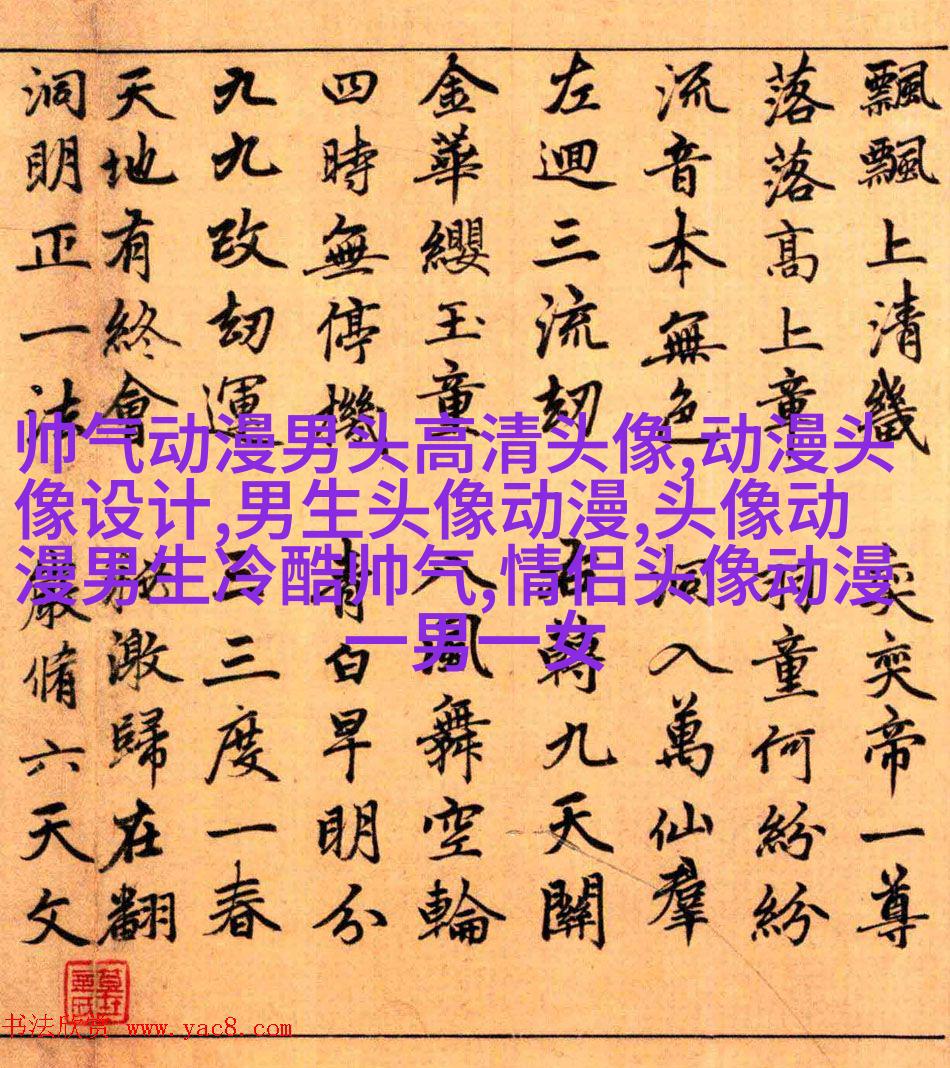 飄飄上清幾奕奕帝一尊
落落高上童羽童何紛紛
流音本無色洞入萬仙羣
左迴三流刧右轉九天關
金華纓玉童八風舞空輪
四時無停機青白早明分
九九改刧運三三度一春
天地有終會激歸在翻
洞明正一法嚴脩六天文
帅气动漫男头高清头像,动漫头
像设计,男生头像动漫,头像动
漫男生冷酷帅气,情侣头像动漫
一男一女
书法欣赏 www.yac8.com